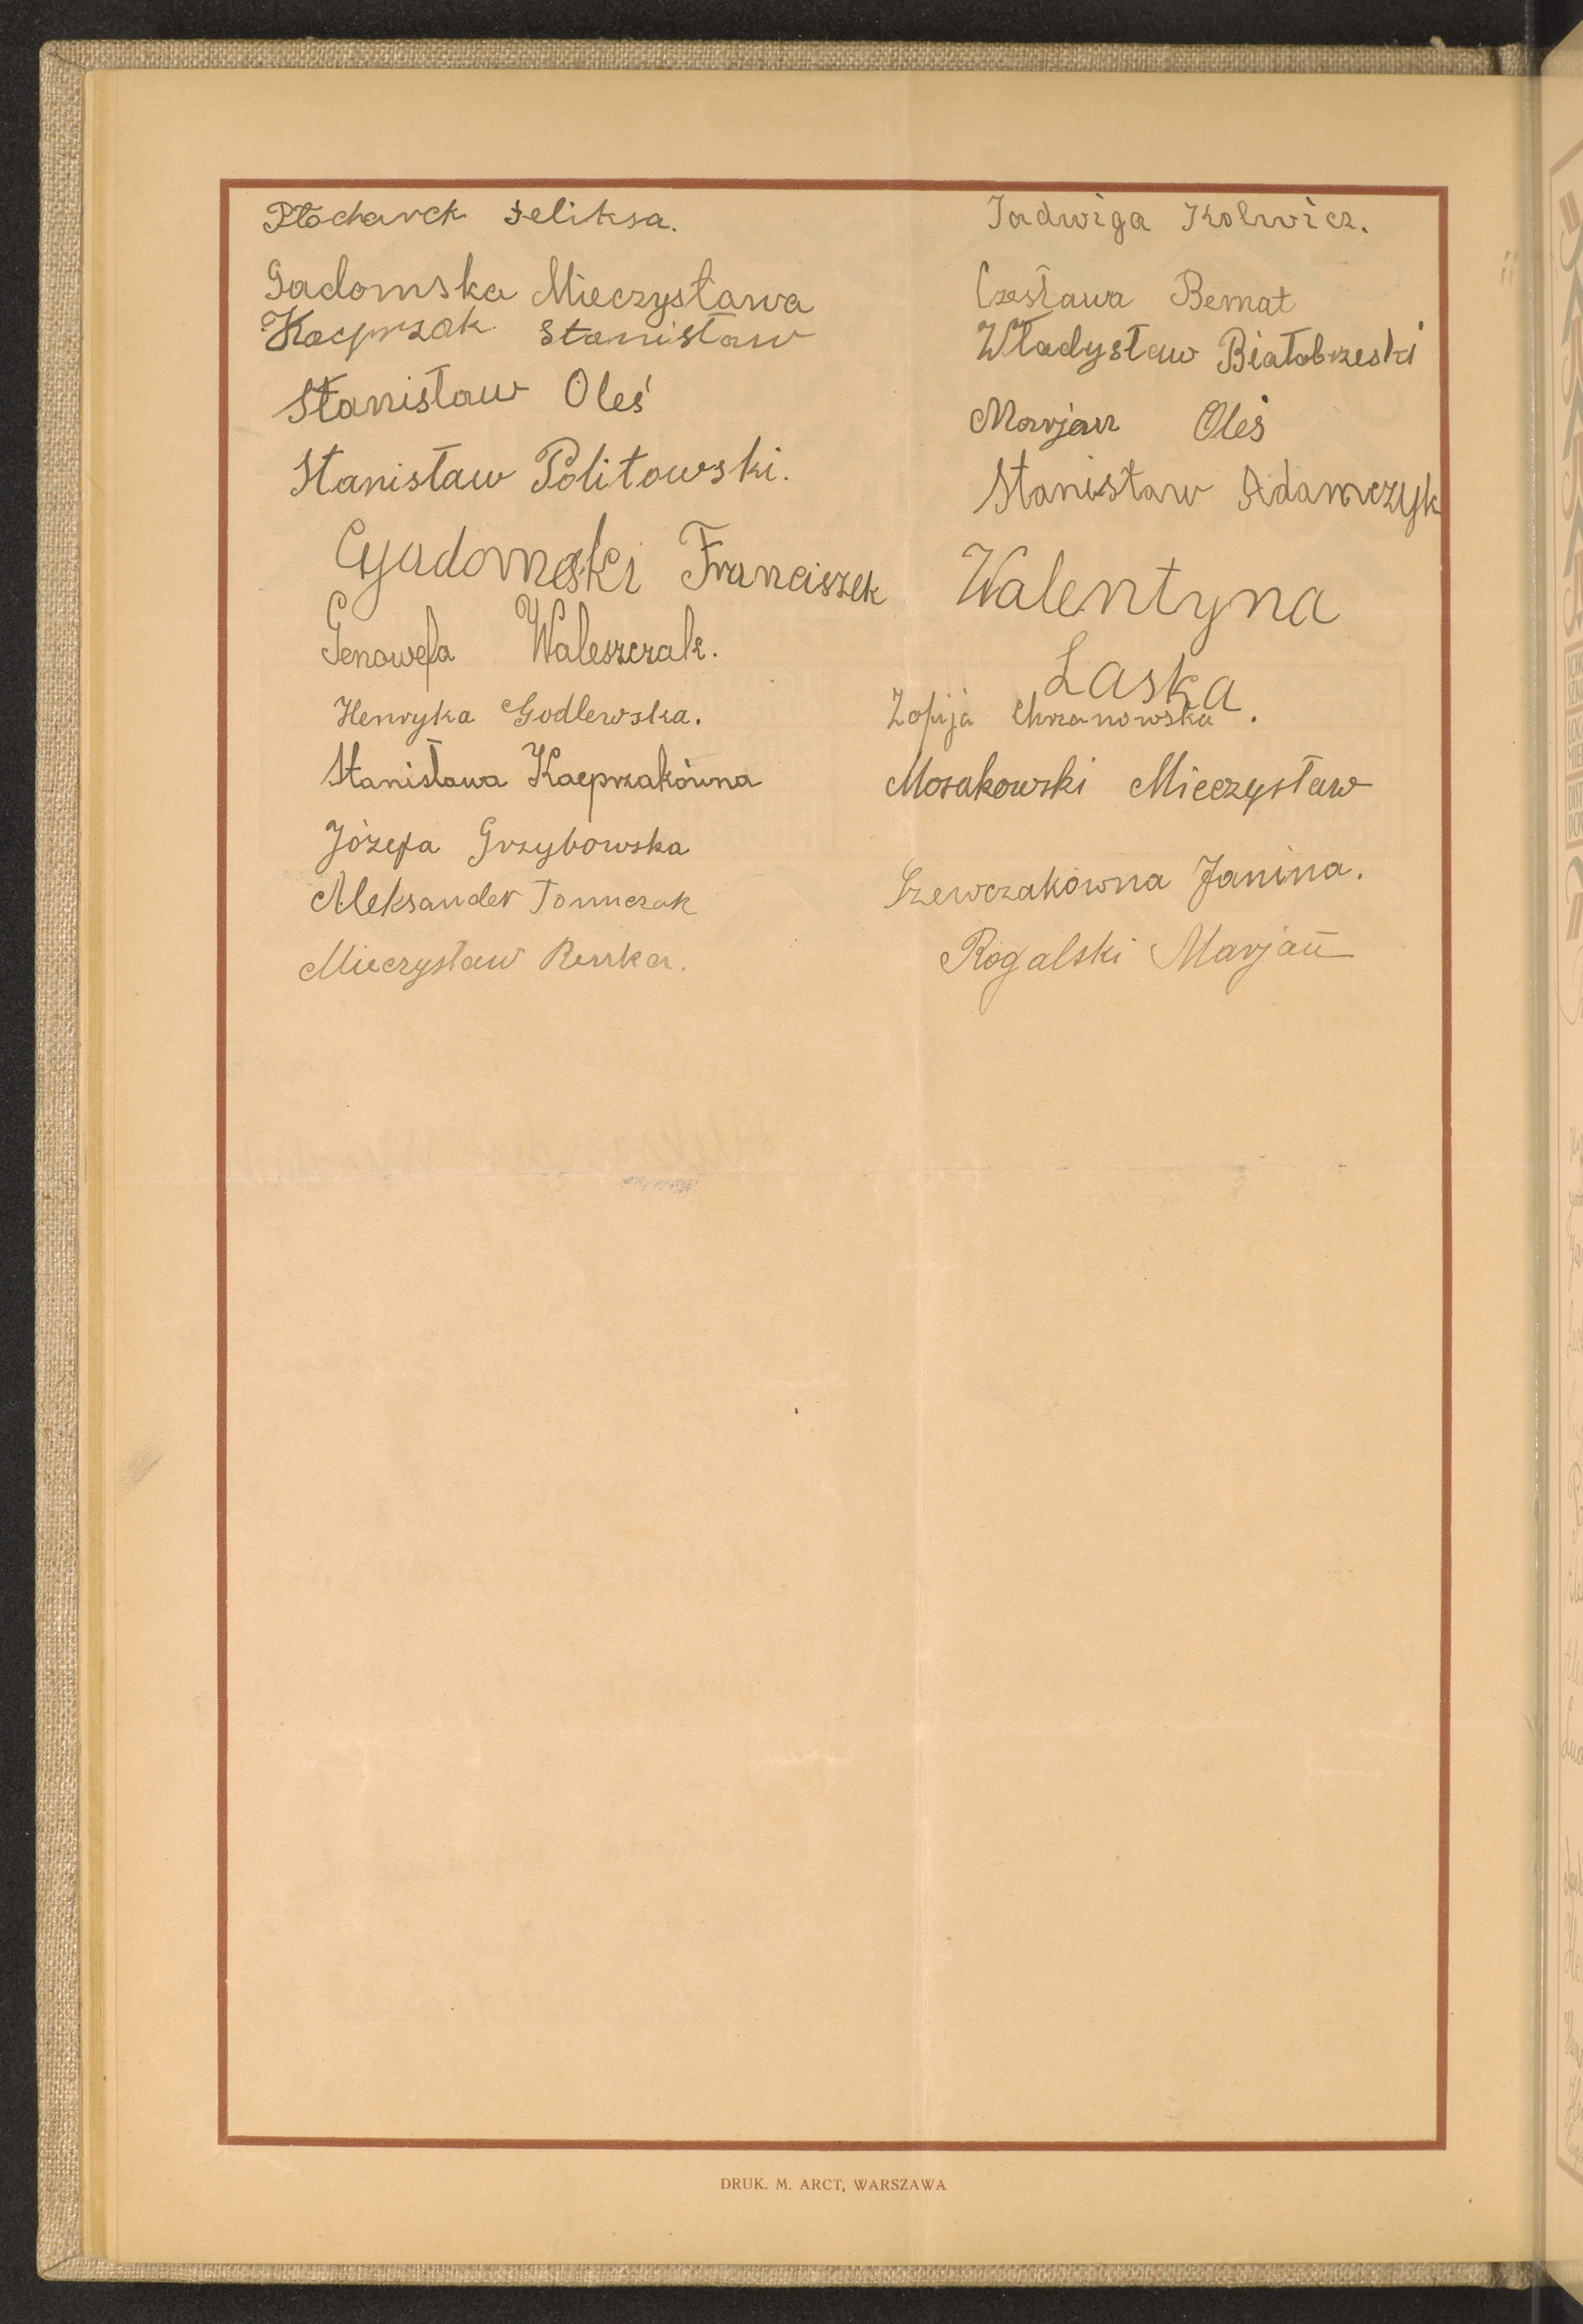 Płocharck Feliksa.
Gadomska Mieczysława
Kacprzak Stanisław
Stanisław Oleś
Stanisław Politowski.
Gadomski Franciszek
Genowefa Waleszczak.
Henryka Godlewska.
Stanisława Kacprzakówna
Józefa Grzybowska
Aleksander Tomczak
Mieczysław
Jadwiga Kolwicz.
Czesława Bernat
Władysław Białobrzeski
Marjan Oleś
Stanisław Adamczyk
Walentyna
Laska
Zofija Chrzanowska.
Mosakowski Mieczysław
Szewczakówna Janina.
Rogalski Marjan
DRUK. M. ARCT, WARSZAWA